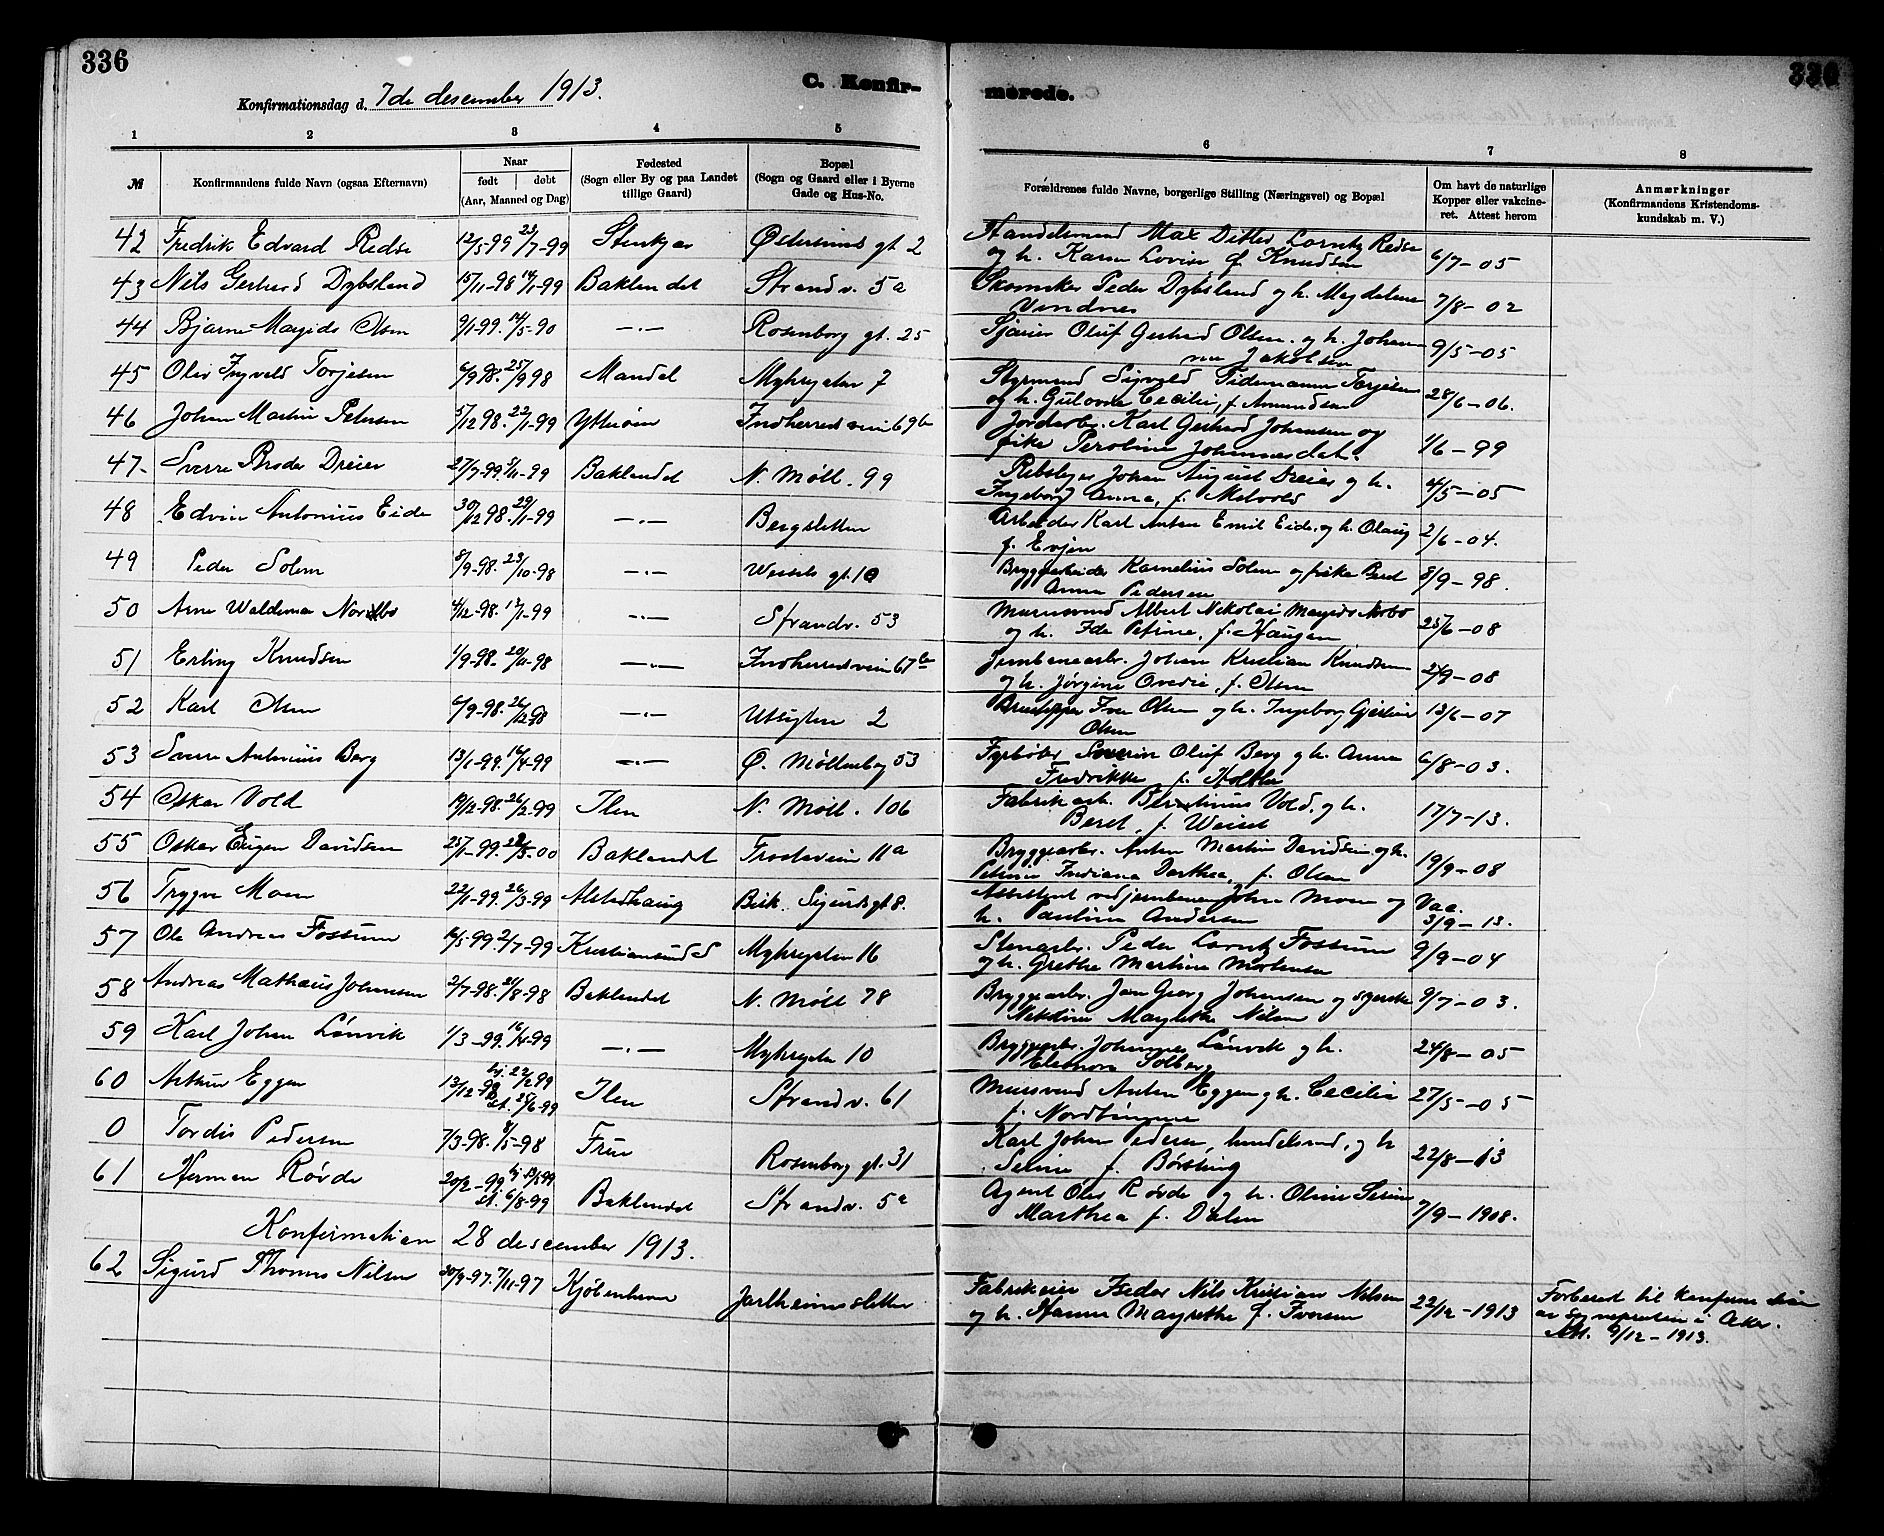 336
Konfirmationsdag d. 7de desember 1913.
C. Konfir-
merede.
336
1 2 3 4 5 6 7 8
№
Konfirmandens fulde Navn (ogsaa Efternavn)
Naar
født | døbt
(Aar, Maaned og Dag)
Fødested
(Sogn eller By og paa Landet
tillige Gaard)
Bopæl
(Sogn og Gaard eller i Byerne
Gade og Hus-No.
Forældrenes fulde Navne, borgerlige Stilling (Næringsvei) og Bopæl
Om havt de naturlige
Kopper eller vakcine-
ret. Attest herom
Anmærkninger
(Konfirmandens Kristendoms-
kundskab m. V.)
42 Fredrik Edvard Redse 12/5-99 23/7-99 Stenkjær Østersunds gt 2 Handelsmand Max Lorntz Redse
og h. Karen Lovise f. Knudsen 6/7-05
43 Nils Gerhard Dybsland 15/11-98 Baklandet Strandv. 5a Peder Dybsland og h. Magdalene
Vindnes 7/8-02
44 Bjarne Magids Olsen 9/1-99. 14/5-90 -.- Rosenborg gt. 25 Oluf Gerhard Olsen og h. Johan
Jakobsen 9/5-05
45 Olav Ingvald Torjesen 6/9 98. 25/9 98 Mandal Myhrgaten 7 Styrmand Sigvald Tidemann Torjesen
og h. Gulovne Cecilie, f. Amundsen 28/6-06.
46 Johan Martin Petersen 5/12 98. 22/1-99 Ytterøen Indherredsveien 69b Jordarb. Karl Gerhard Johansen og
pike Peroline Johannesdat. 1/6-99
47- Sverre Broder Dreier 27/7-99. 5/11-99 Baklandet N. Møll. 99 Rebslager Johan August Dreier og h.
Ingeborg Anna, f. 4/5-05
48 Edvin Antonius Eide 30/12 98. 29/1-99 -.- Bergsletten Arbeider Karl Anton Emil Eide, og h. Olaug
f. Evjen 2/6-04.
49 Peder Solem 8/9-98. 23/10-98 -.- Weisels gt. 10 Bryggearbeider Kornelius Solem og pike Beret
Anna Pedersen 8/9-98.
50 Arne Waldemar Nordbo 4/12-98. 12/1-99 -.- Strandv. 53 Murersvend Albert Nikolai Magids Norbo
og h. Ida Petrine, f. Haugan 25/6-08
51 Erling Knudsen 1/9-98. 20/11-98 -.- Indherredsveien 67b Jernbanearb. Johan Kristian Knudsen
og h. Jørgine Ovedie, f. Olsen 2/9-08
52 Karl Olsen 6/9-98. 26/12-98 -.- Utsigten 2 Iver Olsen og h. Ingeborg
Olsen 13/6-07
53 Sverre Antonius Berg 13/1-99. 16/4-99 -.- Ø. Møllenbg 53 Fyrbøter Severin Oluf Berg og h. Anna
Fredrikke f. Holthe 6/8-03.
54 Oskar Vold 19/12-98. 26/2-99 Ilen N. Møll. 106 Fabrikarb. Vold, og h.
Beret, f. Weiset 17/7-13.
55 Oskar Eugen Davidsen 25/1-99. 28/5-00 Baklandet Frostaveien 11a Bryggearb. Anton Martin Davidsen, og h.
Petrine Indiana Dorthea, f. Olsen 19/9-08
56 Trygve Moen 22/1-99. 26/3-99 Alstadhaug Bisk. Sigurdsgt 8. Assistent ved jernbanen John Moen og
h. Pauline Andersen Vac.
3/9-13.
57 Ole Andreas Fossum 14/5-99. 2/7-99 Kristiansund S Myhrgaten 16 Stenarb. Peder Lorntz Fossum
og h. Grethe Martine Mortensen 9/9-04
58 Andreas Mathæus Johansen 2/7-98. 21/8-98 Baklandet N. Møll 78 Bryggearb. Jan Georg Johansen og syerske
Margrethe Nilsen 9/7-03.
59 Karl Johan Lånvik 1/3-99. 16/4-99 -.- Myhrgaten 10 Bryggearb. Johannes Lånvik og h.
Eleonora Solberg 24/8-05
60 Arthur Eggen 13/12-98 hj. 22/2 99
st. 25/6-99 Ilen Strandv. 61 Mursvend Anton Eggen og h. Cecilie
f. 27/5-05
0 Tordis Pedersen 7/3-98. 8/5-98 Frue Rosenborg gt. 31 Karl Johan Pedersen, handelsmd, og h
Seline f. Børsting 22/8-13
61 Herman Rørde 20/2-99 hj
st. 6/8-99 Baklandet Strandv. 5a Agent Olav Rørde og h. Oline
Marthea f. Dalen 7/9-1908.
Konfirmation 28 descember 1913.
62 Sigurd Thomas Nilsen 30/9-97. 7/11-97 Kjøbenhavn Jarlheimssletten Fabrikeier Peder Nils Kristian Nilsen
og h. Hanna Margrethe f. Iversen 22/12-1913 Forberedt til konfirma
av sognepresten i Aker.
Att. 9/12-1913.